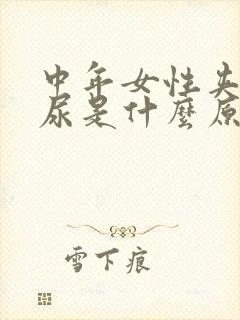 中年女性失
尿是什麼原
雪下痕